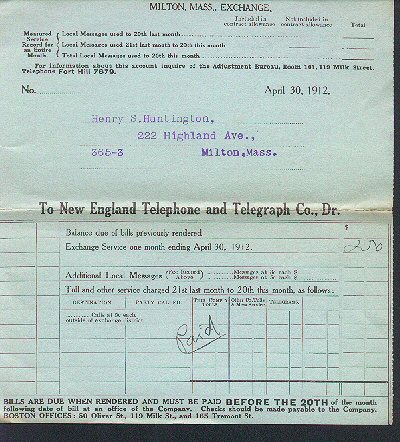 MILTON, MASS., EXCHANGE,
Included in contract allowance Not included in contract allowance Total
Measured Service Record for an Entire Month
Local Messages used to 20th last month
Local Messages used 21st last month to 20th this month
Total Local Messages used to 20th this month
For information about this account inquire of the Adjustment Bureau, Room 161, 119 Milk Street.
Telephone Fort Hill 7679.
No. April 30, 1912.
Henry S. Huntington,
222 Highland Ave.,
365-3 Milton, Mass.
To New England Telephone and Telegraph Co., Dr.
Balance due of bills previously rendered $
Exchange Service one month ending April 30, 1912.
Additional Local Messages (Not Included Above) Messages at 5c each $
Messages at 3c each $
Toll and other service charged 21st last month to 20th this month, as follows:
DESTINATION PARTY CALLED TELEGRAMS
Calls at 5c each
outside of exchange district
Paid
BILLS ARE DUE WHEN RENDERED AND MUST BE PAID BEFORE THE 20TH of the month
following date of bill at an office of the Company. Checks should be made payable to the Company.
BOSTON OFFICES: 50 Oliver St., 119 Milk St., and 165 Tremont St.